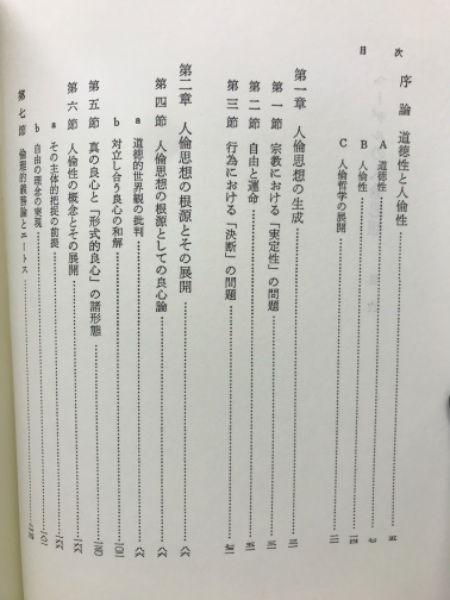 目次
序論 道徳性と人倫性
A 道徳性……五
B 人倫性……七
C 人倫哲学の展開……一四
第一章 人倫思想の生成
第一節 宗教における「実定性」の問題
第二節 自由と運命
第三節 行為における「決断」の問題
第二章 人倫思想の根源とその展開
第四節 人倫思想の根源としての良心論
a 道徳的世界観の批判
b 対立し合う良心の和解
第五節 真の良心と「形式的良心」の諸形態
第六節 人倫性の概念とその展開
a その主体的把捉の前提
b 自由の理念の実現
第七節 倫理的義務論とエートス